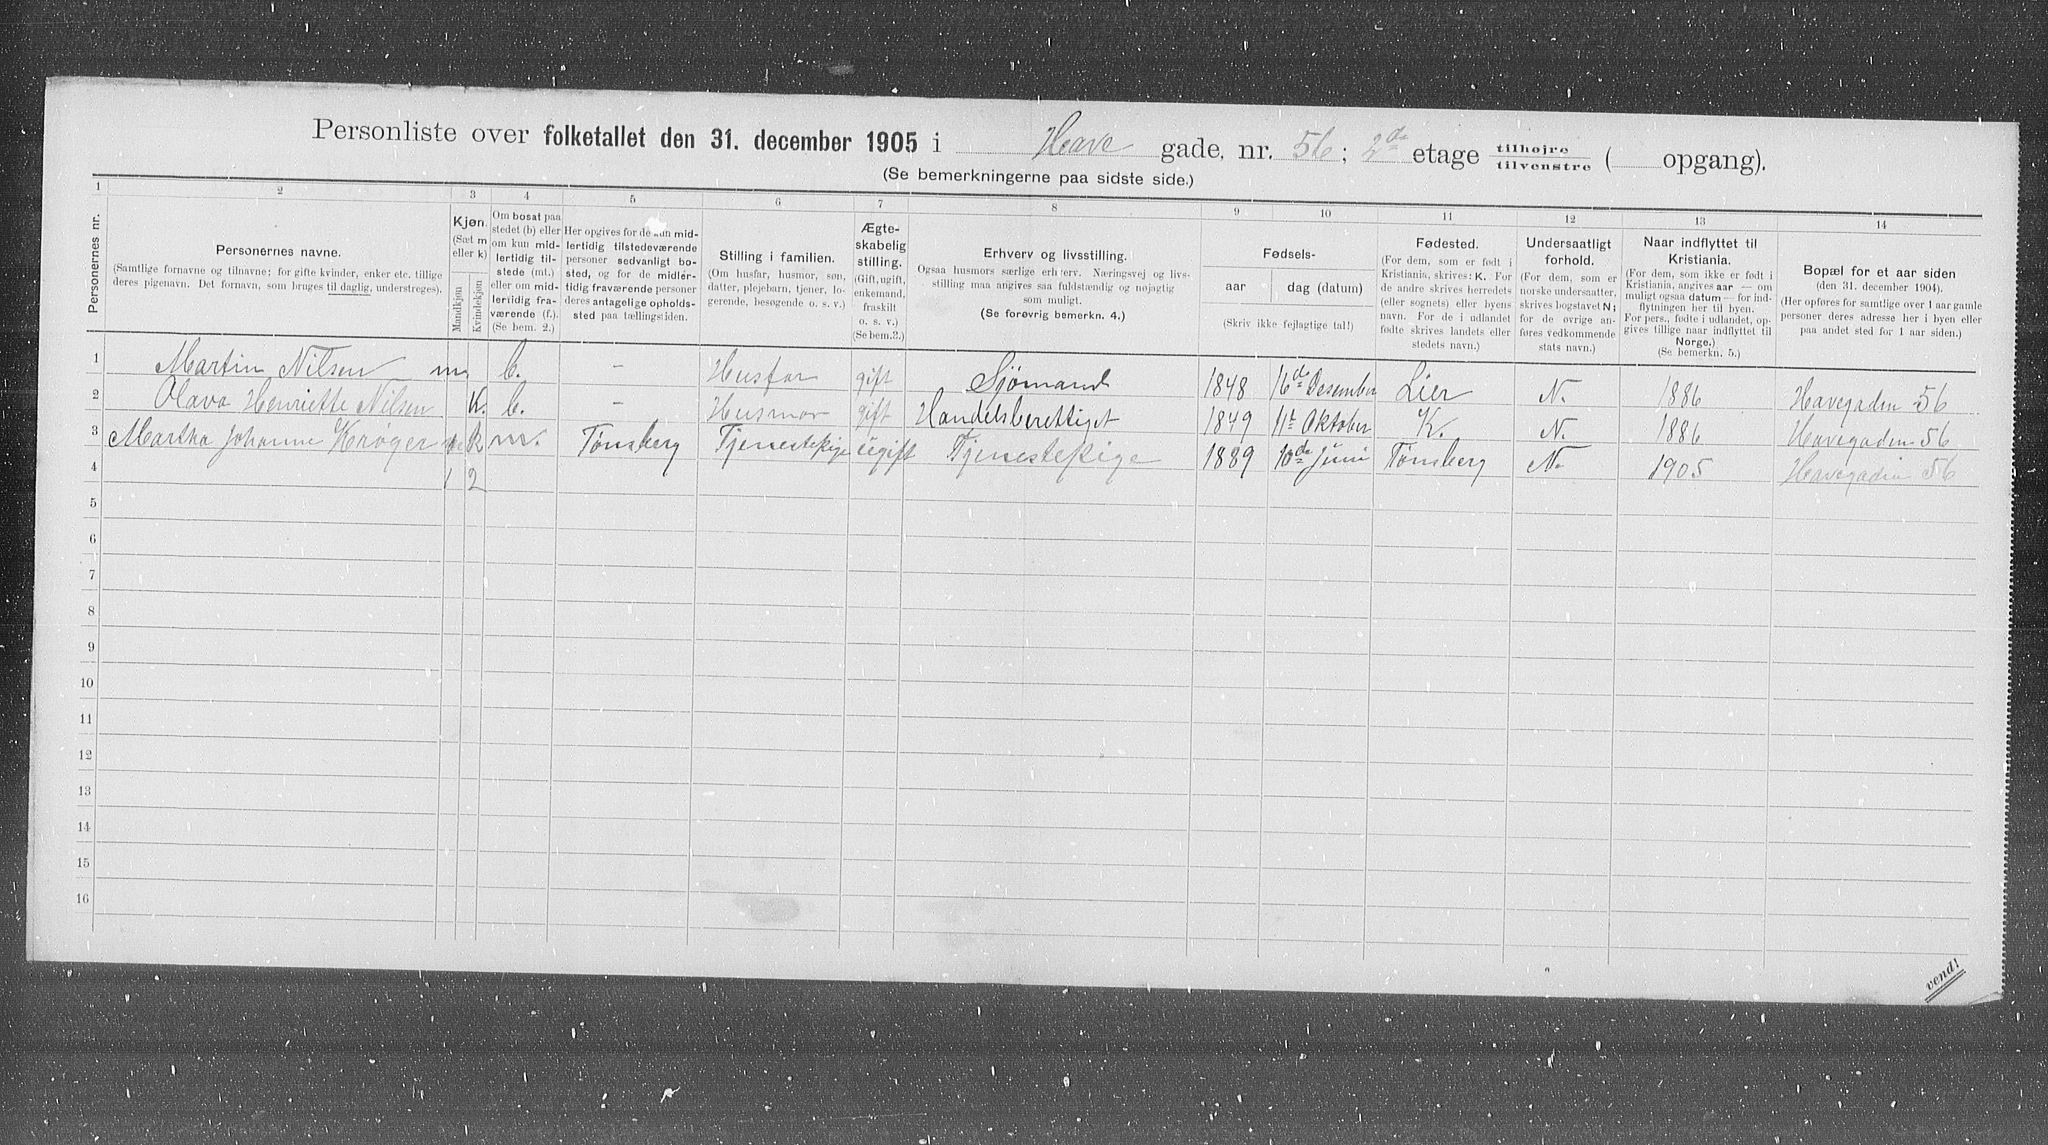 Personliste over folketallet den 31. december 1905 i Have gade, nr. 56; 2de etage tilhøjre tilvenstre ( opgang).
(Se bemerkningerne paa sidste side.)
1 2 3 4 5 6 7 8 9 10 11 12 13 14
Personernes nr.
Personernes navne.
(Samtlige fornavne og tilnavne; for gifte kvinder, enker etc. tillige
deres pigenavn. Det fornavn, som bruges til daglig, understreges).
Kjøn.
(Sæt m
eller k)
Mandkjøn
Kvindekjøn
Om bosat paa
stedet (b) eller
om kun mid-
lertidig til-
stede (mt.)
eller om mid-
lertidig fra-
værende (f.).
(Se bem. 2.)
Her opgives for de kun mid-
lertidig tilstedeværende
personer sedvanligt bo-
sted, og for de midler-
tidig fraværende personer
deres antagelige opholds-
sted paa tællingstiden.
Stilling i familien.
(Om husfar, husmor, søn,
datter, plejebarn, tjener, lo-
gerende, besøgende o. s. v.)
Ægte-
skabelig
stilling.
(Gift, ugift,
enkemand,
fraskilt
o. s. v.)
(Se bem.3.)
Erhverv og livsstilling.
Ogsaa husmors særlige erhverv. Næringsvej og livs-
stilling maa angives saa fuldstændig og nøjagtig
som muligt.
(Se forøvrig bemerkn. 4.)
Fødsels-
aar
dag (datum)
(Skriv ikke fejlagtige tal!)
Fødested.
(For dem, som er født i
Kristiania, skrives: K. For
de andre skrives herredets
(eller sognets) eller byens
navn. For de i udlandet
fødte skrives landets eller
stedets navn.)
Undersaatligt
forhold.
(For dem, som er
norske undersaatter,
skrives bogstavet N;
for de øvrige an-
føres vedkommende
stats navn.)
Naar indflyttet til
Kristiania.
(For dem, som ikke er født i
Kristiania, angives aar — om
muligt ogsaa datum — for ind-
flytningen her til byen.
For pers., fødte i udlandet, op-
gives tillige naar indflyttet til
Norge.)
(Se bemerkn. 5.)
Bopæl for et aar siden
(den 31. december 1904).
(Her opføres for samtlige over 1 aar gamle
personer deres adresse her i byen eller
paa andet sted for 1 aar siden.)
1 Martin Nilsen m. b. - Husfar gift Sjømand 1848 16de Desember Lier N. 1886 Havegaden 56
2 Olava Henriette Nilsen K. b. - Husmor gift Handelsberettiget 1849 11te Oktober K. N. 1886 Havegaden 56
3 Martha Johanne Krøger k m. Tønsberg Tjenestepige ugift Tjenestepige 1889 10de Juni Tønsberg N. 1905 Havegaden 56
4 1 2
5
6
7
8
9
10
11
12
13
14
15
16
vend!